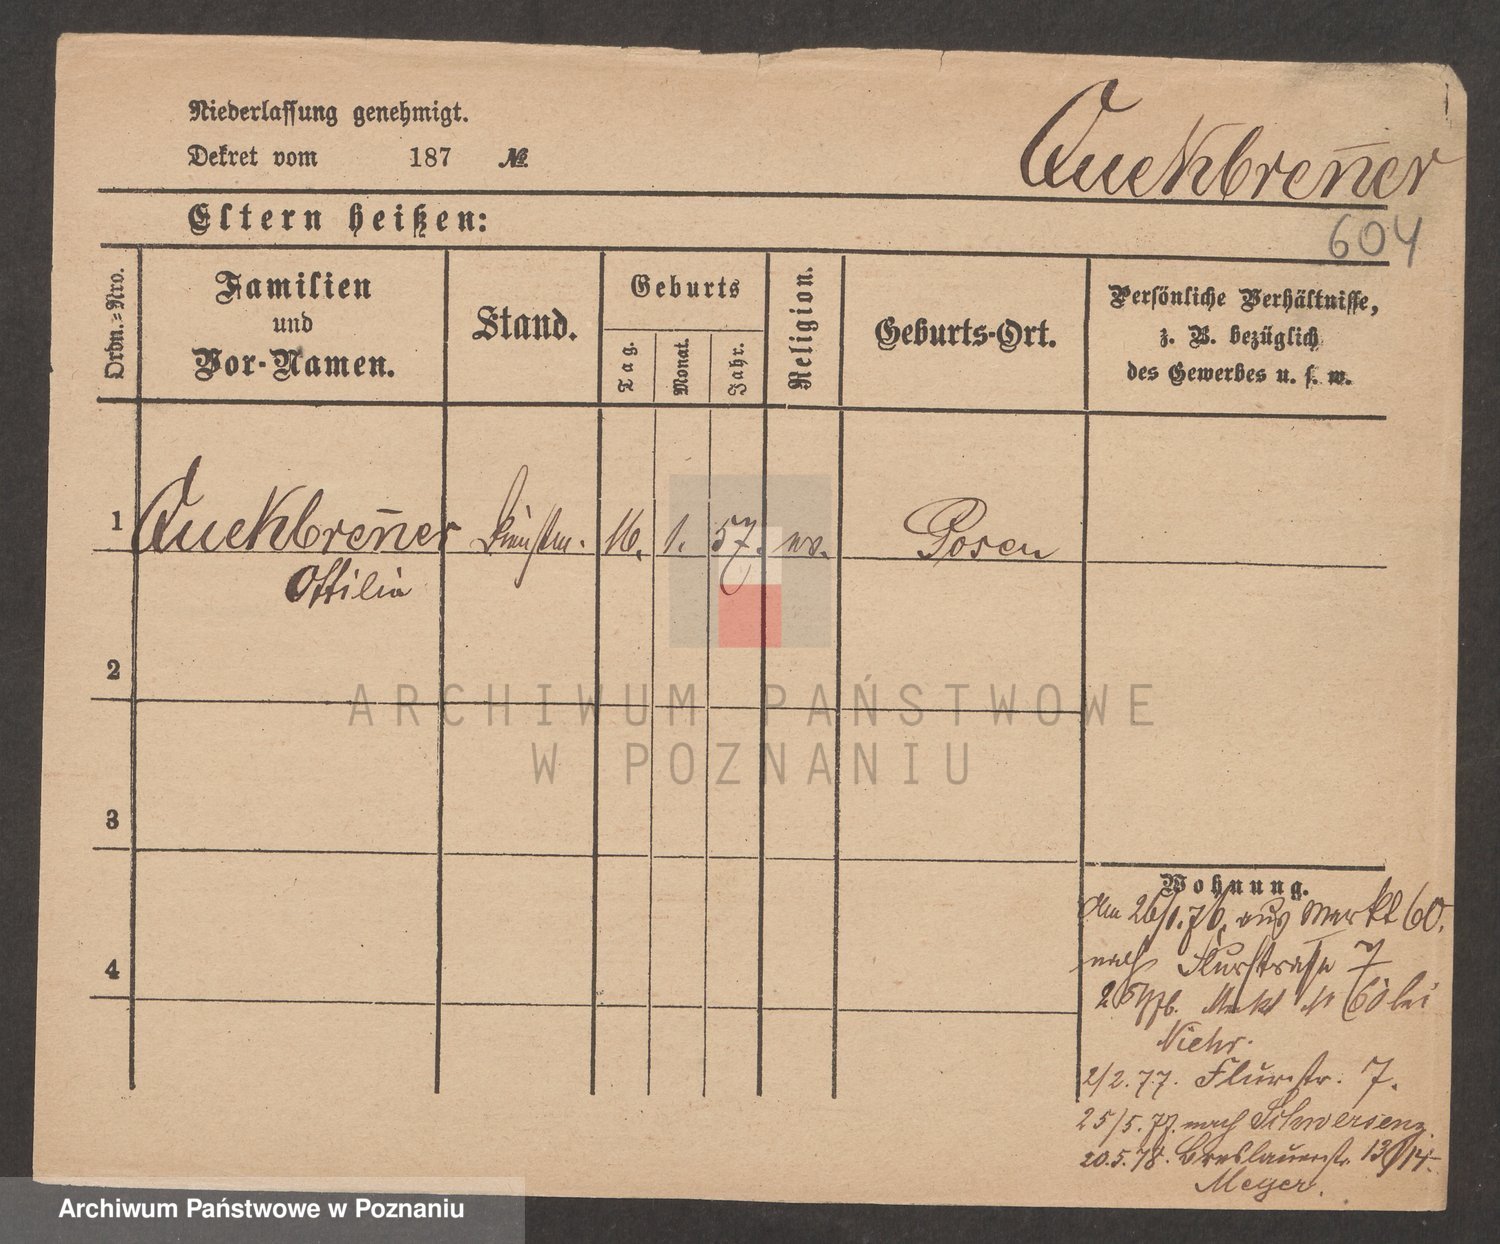 Niederlassung genehmigt.
Dekret vom 187 №
Quekbren̄er
604
Eltern heißen:
Ordn.=Nro.
Familien
und
Vor-Namen.
Stand.
Geburts
Tag.
Monat.
Jahr.
Religion.
Geburts-Ort.
Persönliche Verhältnisse,
z. B. bezüglich
des Gewerbes u. s. w.
1 Quekbren̄er 16. 1. 57. ev. Posen
Ottilia
2
ARCHIWUM PAŃSTWOWE
W POZNANIU
3
Wohnung.
Am 26/1.76. aus Markt 60.
nach Flurstrasse 7
Markt 60 bei
4
2/2.77. Flurstr. 7.
25/5.77. nach Schwersenz.
20.5.78. Breslauerstr. 13/14.
Meyer.
Archiwum Państwowe w Poznaniu